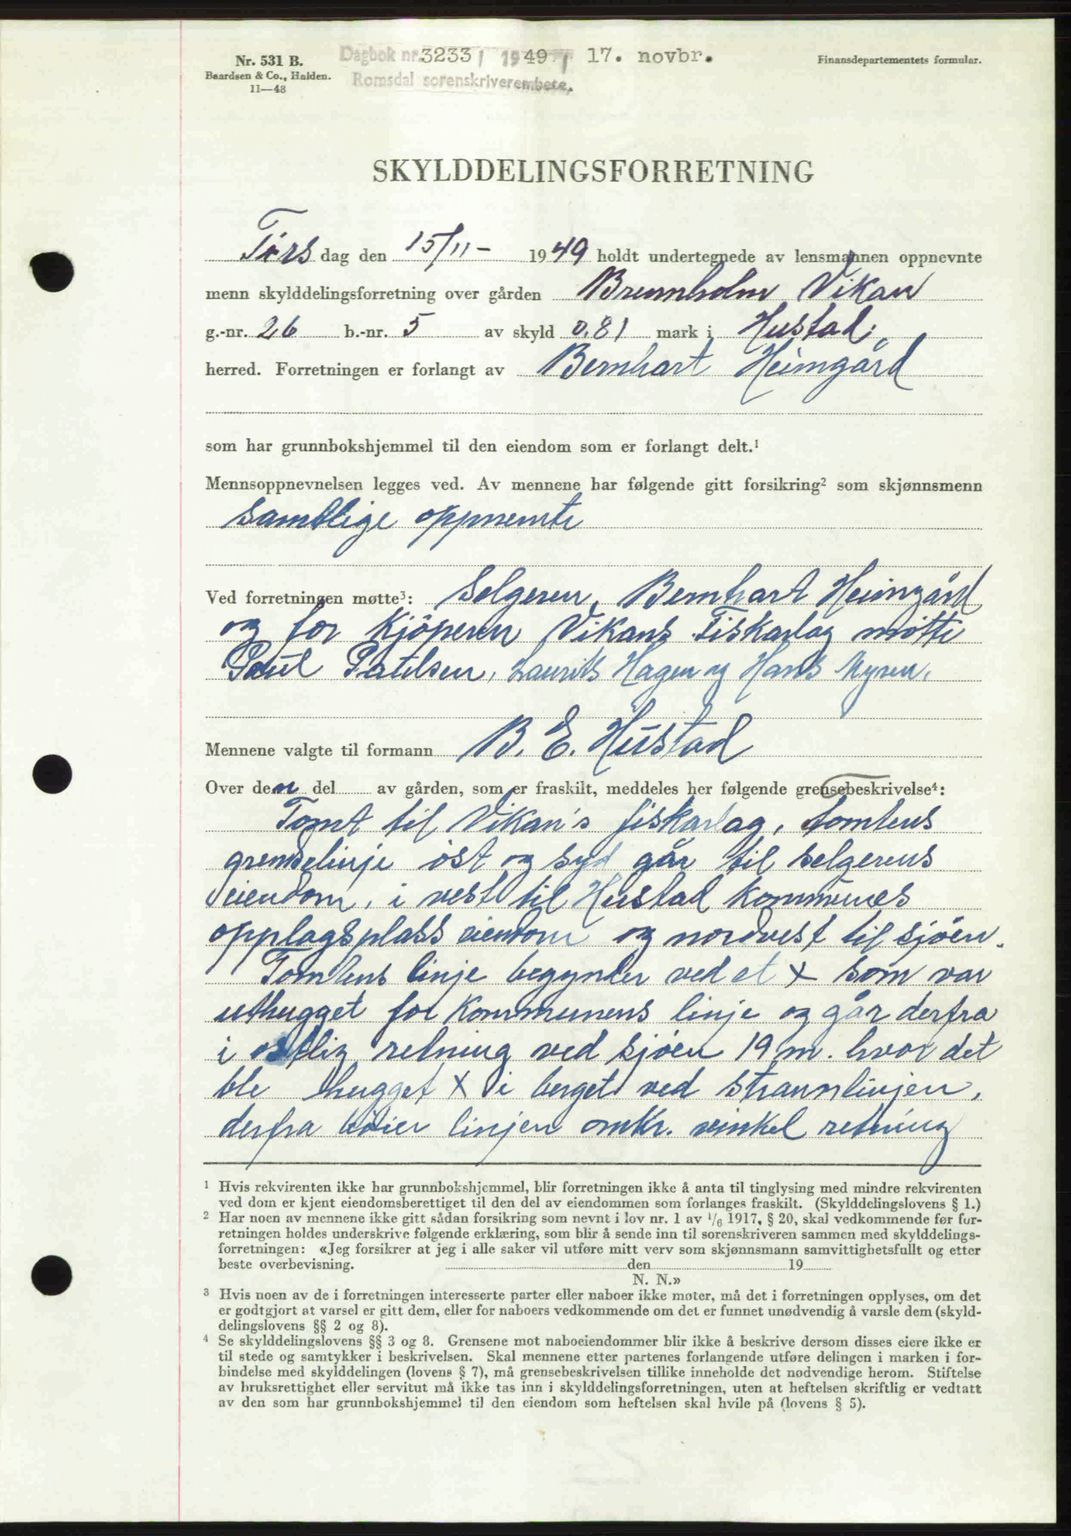 Nr. 531 B.
Baardsen & Co., Halden.
11—48
Dagbok nr. 3233 / 1949 / 17. novbr.
Romsdal sorenskriverembete.
Finansdepartementets formular.
SKYLDDELINGSFORRETNING
Tirs dag den 15/11- 1949 holdt undertegnede av lensmannen oppnevnte
menn skylddelingsforretning over gården Bremholm Vikan
g.-nr. 26 b.-nr. 5 av skyld 0.81 mark i Hustad
herred. Forretningen er forlangt av Bernhart Heimgård
som har grunnbokshjemmel til den eiendom som er forlangt delt.¹
Mennsoppnevnelsen legges ved. Av mennene har følgende gitt forsikring² som skjønnsmenn
Samtlige oppnemte
Ved forretningen møtte³: Selgeren, Bernhart Heimgård
og for Kjöperen Vikans Fiskarlag møtte
Paul Patelsen, Laurits Hagen og Hans Myren.
Mennene valgte til formann B. E. Hustad
Over den del av gården, som er fraskilt, meddeles her følgende grensebeskrivelse⁴:
Tomt til Vikan's fiskarlag, Tomtens
grenselinje öst og syd går til selgerens
eiendom, i vest til Hustad Kommunes
opplagsplass eiendom og nordvest til sjöen.
Tomtens linje begynter ved et x som var
uthugget for Kommunens linje og går derfra
i östlig retning ved sjöen 19 m. hvor det
ble hugget x i berget ved straumlinjen,
derfra böier linjen omkr. vinkel retning
¹ Hvis rekvirenten ikke har grunnbokshjemmel, blir forretningen ikke å anta til tinglysing med mindre rekvirenten
ved dom er kjent eiendomsberettiget til den del av eiendommen som forlanges fraskilt. (Skylddelingslovens § 1.)
² Har noen av mennene ikke gitt sådan forsikring som nevnt i lov nr. 1 av ¹/₆ 1917, § 20, skal vedkommende før for-
retningen holdes underskrive følgende erklæring, som blir å sende inn til sorenskriveren sammen med skylddelings-
forretningen: «Jeg forsikrer at jeg i alle saker vil utføre mitt verv som skjønnsmann samvittighetsfullt og etter
beste overbevisning. den 19
N. N.»
³ Hvis noen av de i forretningen interesserte parter eller naboer ikke møter, må det i forretningen opplyses, om det
er godtgjort at varsel er gitt dem, eller for naboers vedkommende om det er funnet unødvendig å varsle dem (skyld-
delingslovens §§ 2 og 8).
⁴ Se skylddelingslovens §§ 3 og 8. Grensene mot naboeiendommer blir ikke å beskrive dersom disses eiere ikke er
til stede og samtykker i beskrivelsen. Skal mennene etter partenes forlangende utføre delingen i marken i for-
bindelse med skylddelingen (lovens § 7), må grensebeskrivelsen tillike inneholde det nødvendige herom. Stiftelse
av bruksrettighet eller servitut må ikke tas inn i skylddelingsforretningen, uten at heftelsen skriftlig er vedtatt
av den som har grunnbokshjemmel til den eiendom som heftelsen skal hvile på (lovens § 5).